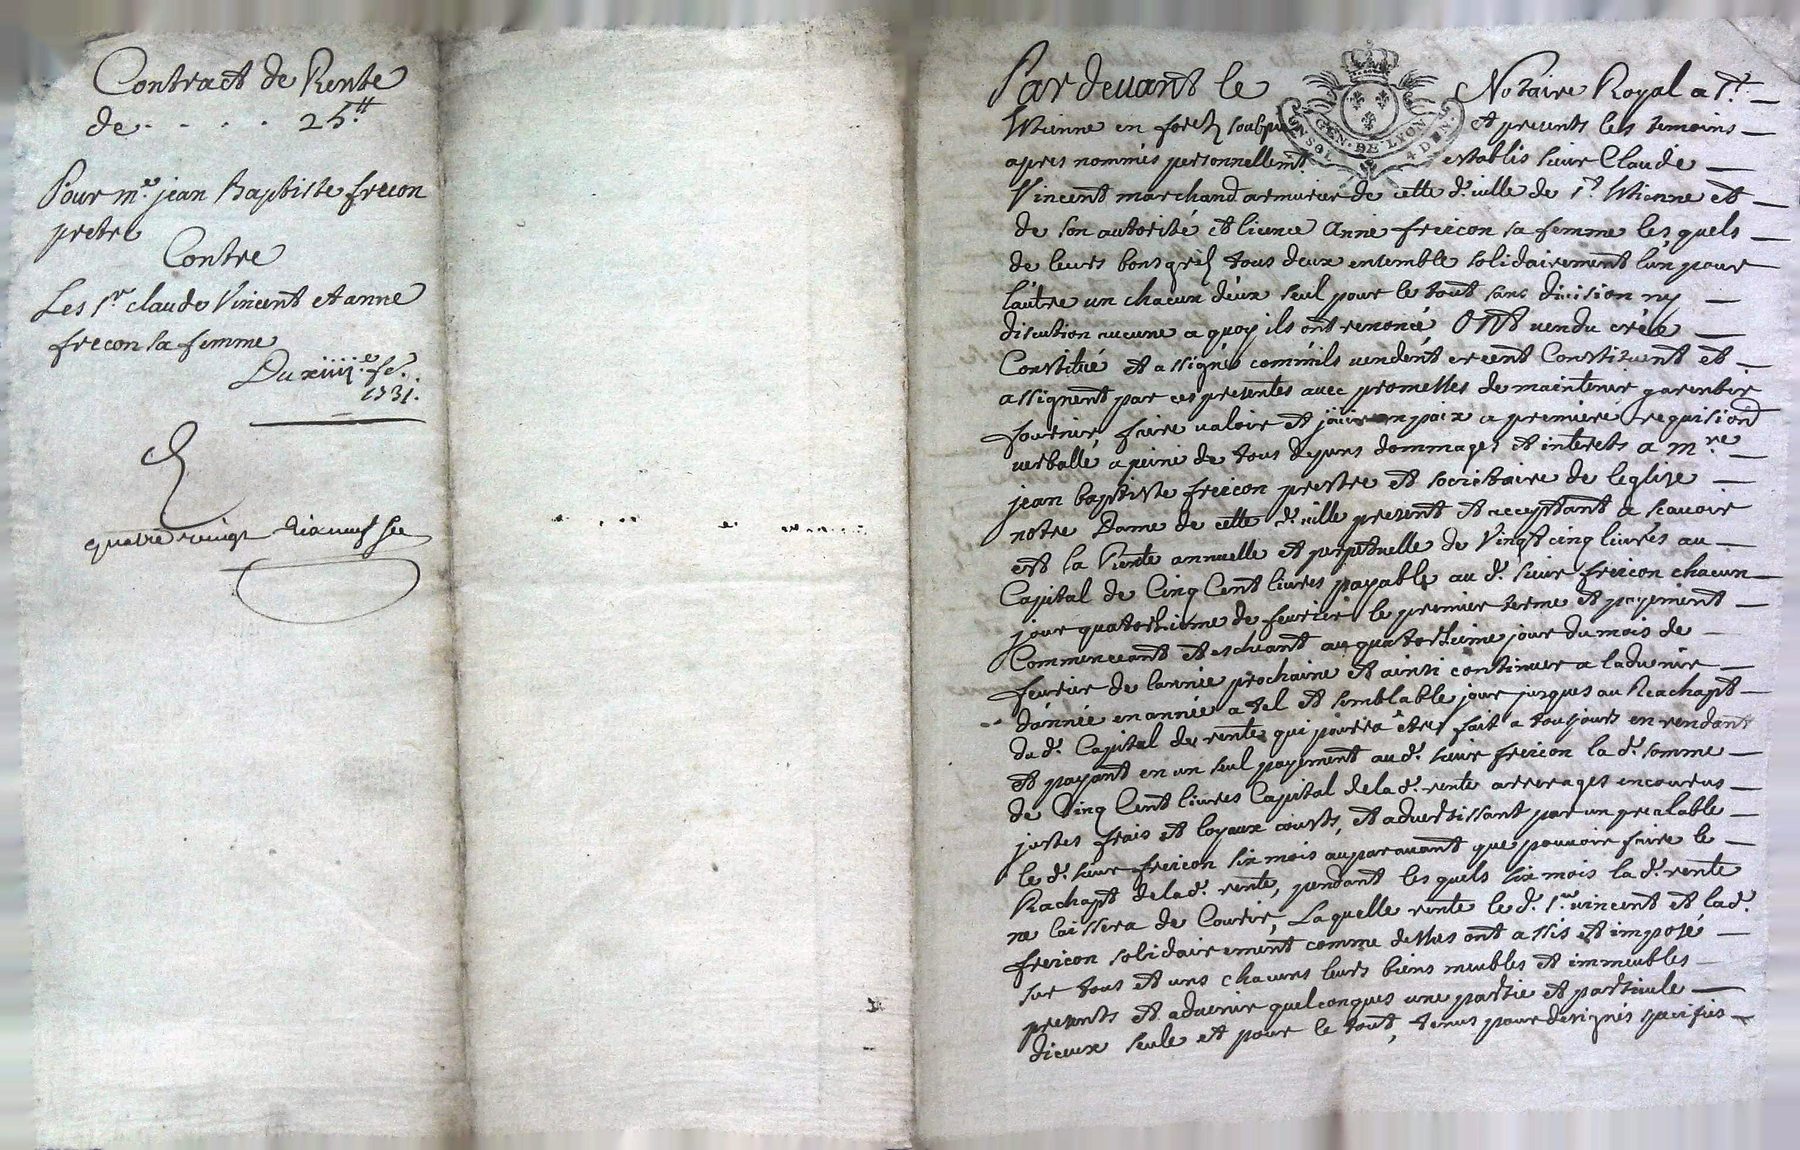 Contract de Rente
de . . . . 25.tt
Pour m.e jean Baptiste frecon
pretre
Contre
Les s.rs claude Vincent et anne
frecon sa femme
Du xiiij.e fe.r
1731.
quatre vingt dix neuf
Par devant le Notaire Royal a S.t
Etienne en forez soubsne et presents les temoins
apres nommés personnellem.t establis sieur Claude
Vincent marchand armurier de cette d. ville de S.t Etienne et
de son autorité et licence Anne freicon sa femme les quels
de leurs bons grez tous deux ensemble solidairement l'un pour
l'autre un chacun d'eux seul pour le tout sans division ny
discution aucune a quoy ils ont renoncé Ont vendu créé
Constitué et assigné comm'ils vendent creent Constituent et
assignent par ces presentes avec promesses de maintenir garentir
fournir, faire valoir et jouir en paix a premiere requisiõn
verballe a peine de tous depens dommages et interets a m.re
jean baptiste freicon prestre et societaire de leglize
notre Dame de cette d. ville present et acceptant a scavoir
est la Rente annuelle et perpetuelle de Vingt cinq livres au
Capital de Cinq Cent livres payable au d. sieur freicon chacun
jour quatorzieme de fevrier le premier terme et payement
Commenceant et escheant au quatorzieme jour du mois de
fevrier de l'année prochaine et ainsi continuer a ladvenir
d'année en année a tel et semblable jour jusques au Reachapt
du d. Capital de rente qui pourra etre fait a toujours en rendant
et payant en un seul payement au d. sieur freicon la d. somme
de Cinq Cent livres Capital de la d. rente arrerages encourus
justes frais et loyaux cousts, et advertissant par un prealable
le d. sieur freicon six mois auparavant que pouvoir faire le
Rachapt de la d. rente, pendant les quels six mois la d. rente
ne laissera de Courir, Laquelle rente le d. s.r vincent et la d.
freicon solidairement comme dessus ont assis et imposé
sur tous et uns chacuns leurs biens meubles et immeubles
presents et advenir quelconques une partie et particule
diceux seule et pour le tout, tenus pour designés specifiés
GEN. DE LYON
SOL 4 DEN.